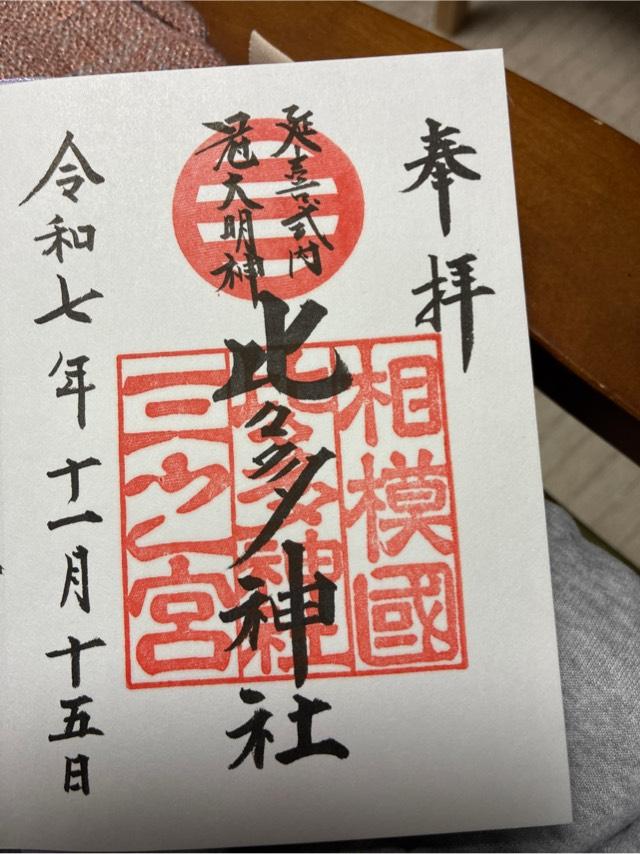 奉拝
延喜式内
冠大明神
比々多神社
相模國
比々多神社
三之宮
令和七年十一月十五日